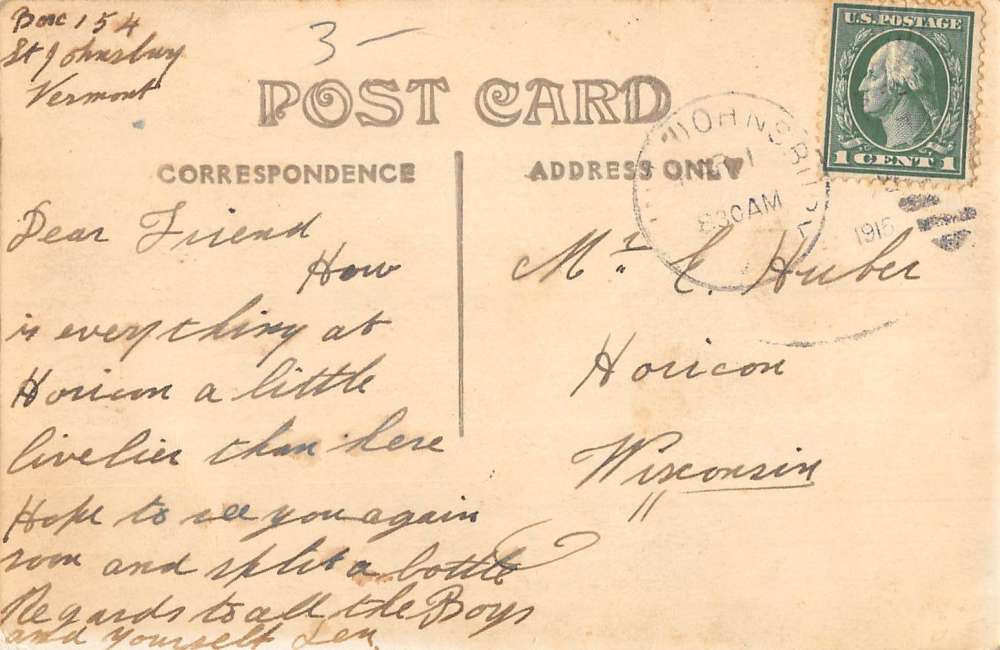 Box 154
St Johnsbury
Vermont
3 —
POST CARD
CORRESPONDENCE
ADDRESS ONLY
U.S. POSTAGE
1 CENT 1
JOHNSBURY
1
830AM
1915
Dear Friend
How
is everything at
Horicon a little
livelier than here
Hope to see you again
soon and split a bottle
Regards to all the Boys
and yourself Len
Mr. C. Huber
Horicon
Wisconsin